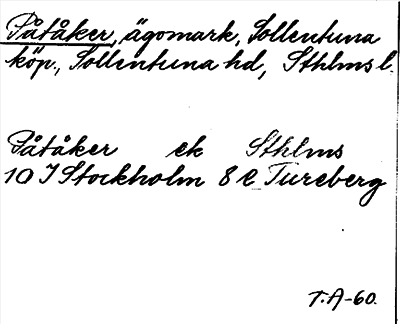 Påtåker, ägomark, Sollentuna
köp., Sollentuna hd, Sthlms l.
Påtåker ek Sthlms
10 I Stockholm 8 e Tureberg
T.A-60.